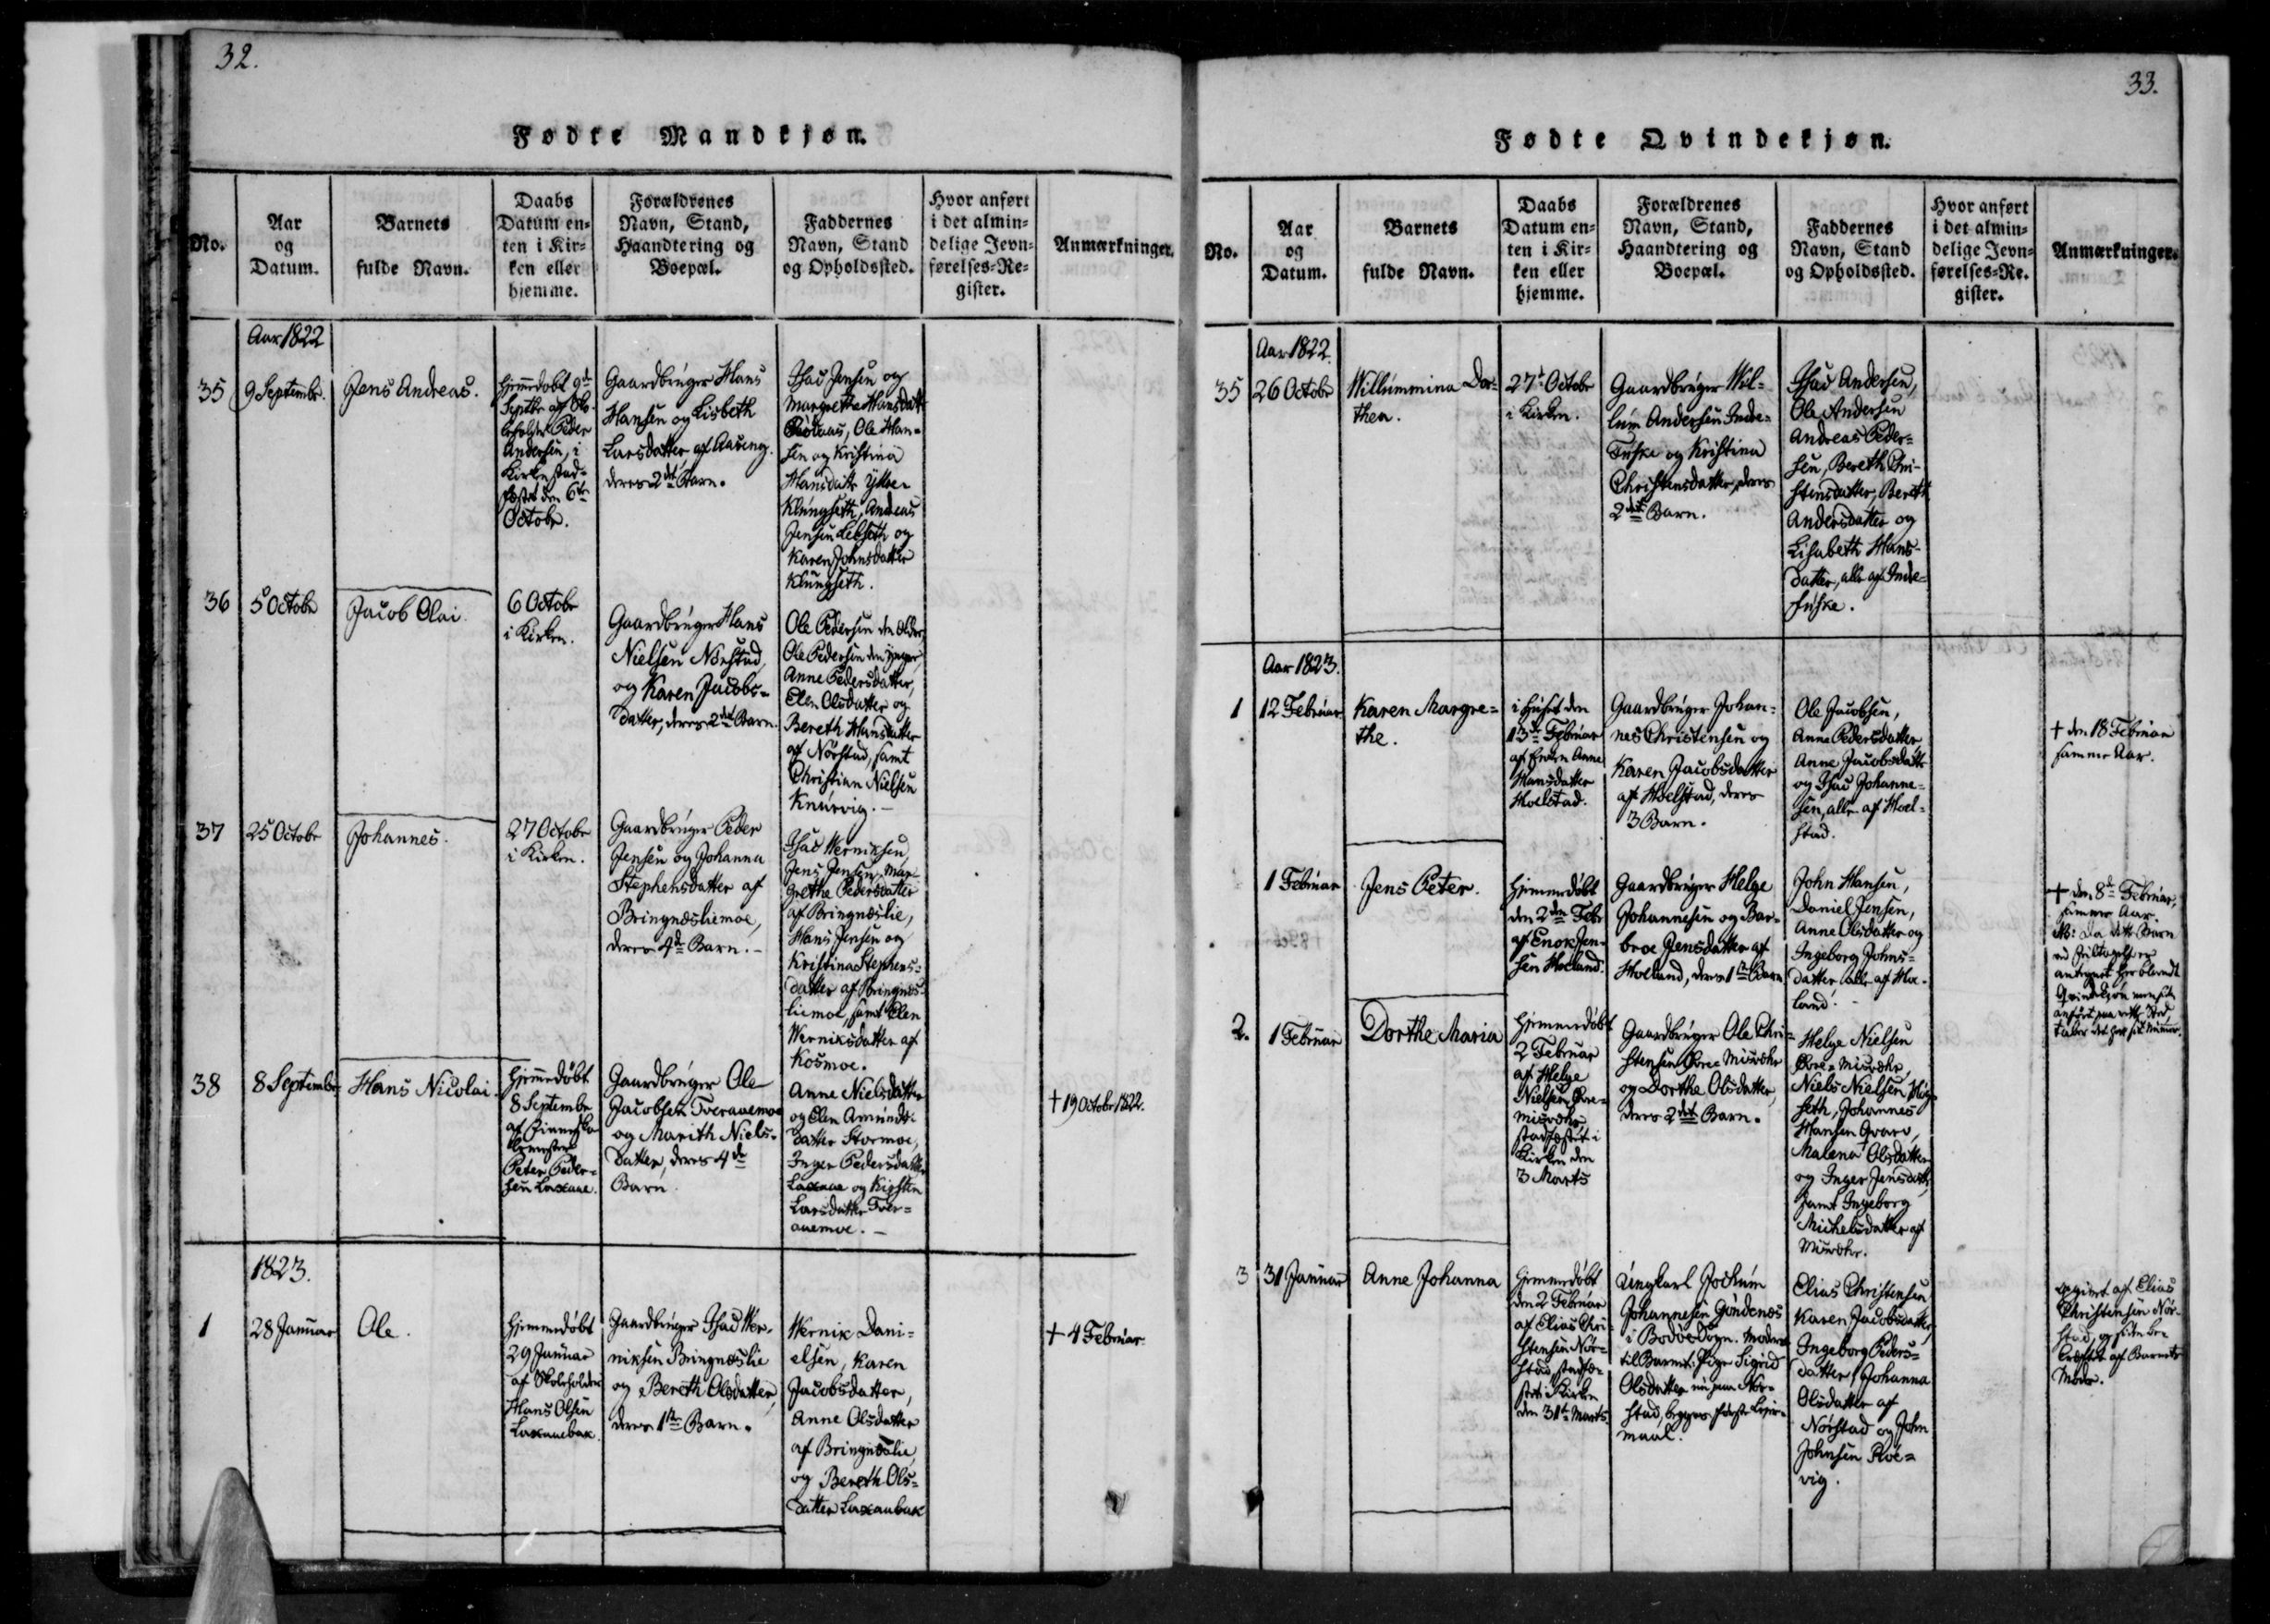 32.
Fødte Mandkjøn.
No.
Aar
og
Datum.
Barnets
fulde Navn.
Daabs
Datum en-
ten i Kir-
ken eller
hjemme.
Forældrenes
Navn, Stand,
Haandtering og
Boepæl.
Faddernes
Navn, Stand
og Opholdssted.
Hvor anført
i det almin-
delige Jevn-
førelses-Re-
gister.
Anmærkninger.
Aar 1822
35
9 Septembr.
Jens Andreas.
Hjemdøbt 9de
Septbr af Sko-
leholder Peder
Andersen, i
Kirken stad-
fæstet den 6te
Octobr.
Gaardbruger Hans
Hansen og Lisbeth
Larsdatter af Aaseng.
deres 2det Barn.
Isac Jensen og
Margrethe Hansdatt
Ole Han-
sen og Kristina
Hansdattr Yttre-
Klungseth, Andreas
Jensen Lebseth og
Karen Johnsdatter
Klungseth.
36
5 Octobr
Jacob Olai.
6 Octobr
i Kirken.
Gaardbruger Hans
Nielsen Nørstad,
og Karen Jacobs-
datter, deres 2det Barn.
Ole Pedersen den ældre,
Ole Pedersen den yngre,
Anne Pedersdatter,
Elen Olsdatter og
Bereth Hansdatter
af Nørstad, samt
Christian Nielsen
Knurvig. -
37
25 Octobr
Johannes.
27 Octobr
i Kirken.
Gaardbruger Peder
Jensen og Johanna
Stephensdatter af
Bringnesliemoe,
deres 4de Barn. -
Isac Werniksen,
Jens Jensen, Mar-
grethe Pedersdatter
af Bringneslie,
Hans Jensen og
Kristina Stephens-
datter af Bringnes-
liemoe, samt Elen
Werniksdatter af
Kosmoe.
38
8 Septembr
Hans Nicolai.
Hjemmdøbt
8 Septembr
af
Peter Peder-
sen Laxaae.
Gaardbruger Ole
Jacobsen Tveraaemoe
og Marith Niels-
datter, deres 4de
Barn.
Anne Nielsdatter
og Elen Amunds-
datter Stormoe,
Inger Pedersdatter
Laxaae og Kirsten
Larsdatter Tver-
aaemoe. -
† 19 Octobr 1822.
1823.
1
28 Januar
Ole.
Hjemmedøbt
29 Januar
af Skoleholder
Hans Olsen
Laxaaebak.
Gaardbruger Isac Wer-
niksen Bringneslie
og Bereth Olsdatter,
deres 1ste Barn.
Wernik Dani-
elsen, Karen
Jacobsdatter,
Anne Olsdatter
af Bringneslie,
og Bereth Ols-
datter Laxaabak
† 4 Februar
33.
Fødte Qvindekjøn.
No.
Aar
og
Datum.
Barnets
fulde Navn.
Daabs
Datum en-
ten i Kir-
ken eller
hjemme.
Forældrenes
Navn, Stand,
Haandtering og
Boepæl.
Faddernes
Navn, Stand
og Opholdssted.
Hvor anført
i det almin-
delige Jevn-
førelses-Re-
gister.
Anmærkninger.
Aar 1822.
35
26 Octobr
Willummina Dor-
thea.
27de Octobr
i Kirken.
Gaardbruger Wil-
lum Andersen Indre-
Fuske og Kristina
Christensdatter, deres
2det Barn.
Isac Andersen,
Ole Andersen
Andreas Peder-
sen, Bereth Chri-
stensdatter, Bereth
Andersdatter og
Lisabeth Hans-
datter, alle af Indre-
fuske.
Aar 1823.
1
12 Februar
Karen Margre-
the.
i Huset den
13de Februar
af Enken Anne
Hansdatter
Hoelstad.
Gaardbruger Johan-
nes Christensen og
Karen Jacobsdatter
af Hoelstad, deres
3 Barn.
Ole Jacobsen,
Anne Pedersdatter
Anne Jacobsdatter
og Isac Johanne-
sen, alle af Hoel-
stad.
† den 18 Februar
samme Aar.
1 Februar
Jens Peter.
Hjemmedøbt
den 2den Febr
af Enok Jen-
sen Hoeland.
Gaardbruger Helge
Johannesen og Bar-
broe Jensdatter af
Hoeland, deres 1ste Barn
John Hansen,
Daniel Jensen,
Anne Olsdatter og
Ingeborg Johns-
datter alle af Hoe-
land. -
† den 8de Februar,
samme Aar.
NB: Da dette Barn
ved
antegnet her blandt
Qvindekjøn
anført paa rette Sted
taber det her sit Nummer.
2.
1 Februar
Dorthe Maria
Hjemmedøbt
2 Februar
af Helge
Nielsen Øvre-
misvæhr
stadfæstet i
Kirken den
3 Marts
Gaardbruger Ole Chri-
stensen Øvre-Misvæhr
og Dorthe Olsdatter,
deres 2det Barn.
Helge Nielsen
Øvre-Misvæhr,
Niels Nielsen Høg-
seth, Johannes
Hansen Qvarv,
Malena Olsdatter
og Inger Jensdatter,
samt Ingeborg
Michelsdatter af
Misvæhr.
3
31 Januar
Anne Johanna
Hjemmedøbt
den 2 Februar
af Elias Chri-
stensen Nør-
stad, stadfæ-
stet i Kirken
den 31te Marts
Ungkarl Jochum
Johannesen Godenæs
i Bodøe Sogn. Moder
til Barnet: Pige Sigrid
Olsdatter nu paa Nør-
stad, begges første Leier-
maal.
Elias Christensen
Karen Jacobsdatter,
Ingeborg Peders-
datter, Johanna
Olsdatter af
Nørstad og John
Johnsen Roe-
vig.
opgivet af Elias
Christensen Nør-
stad, og siden be-
kræftet af Barnets
Moder.